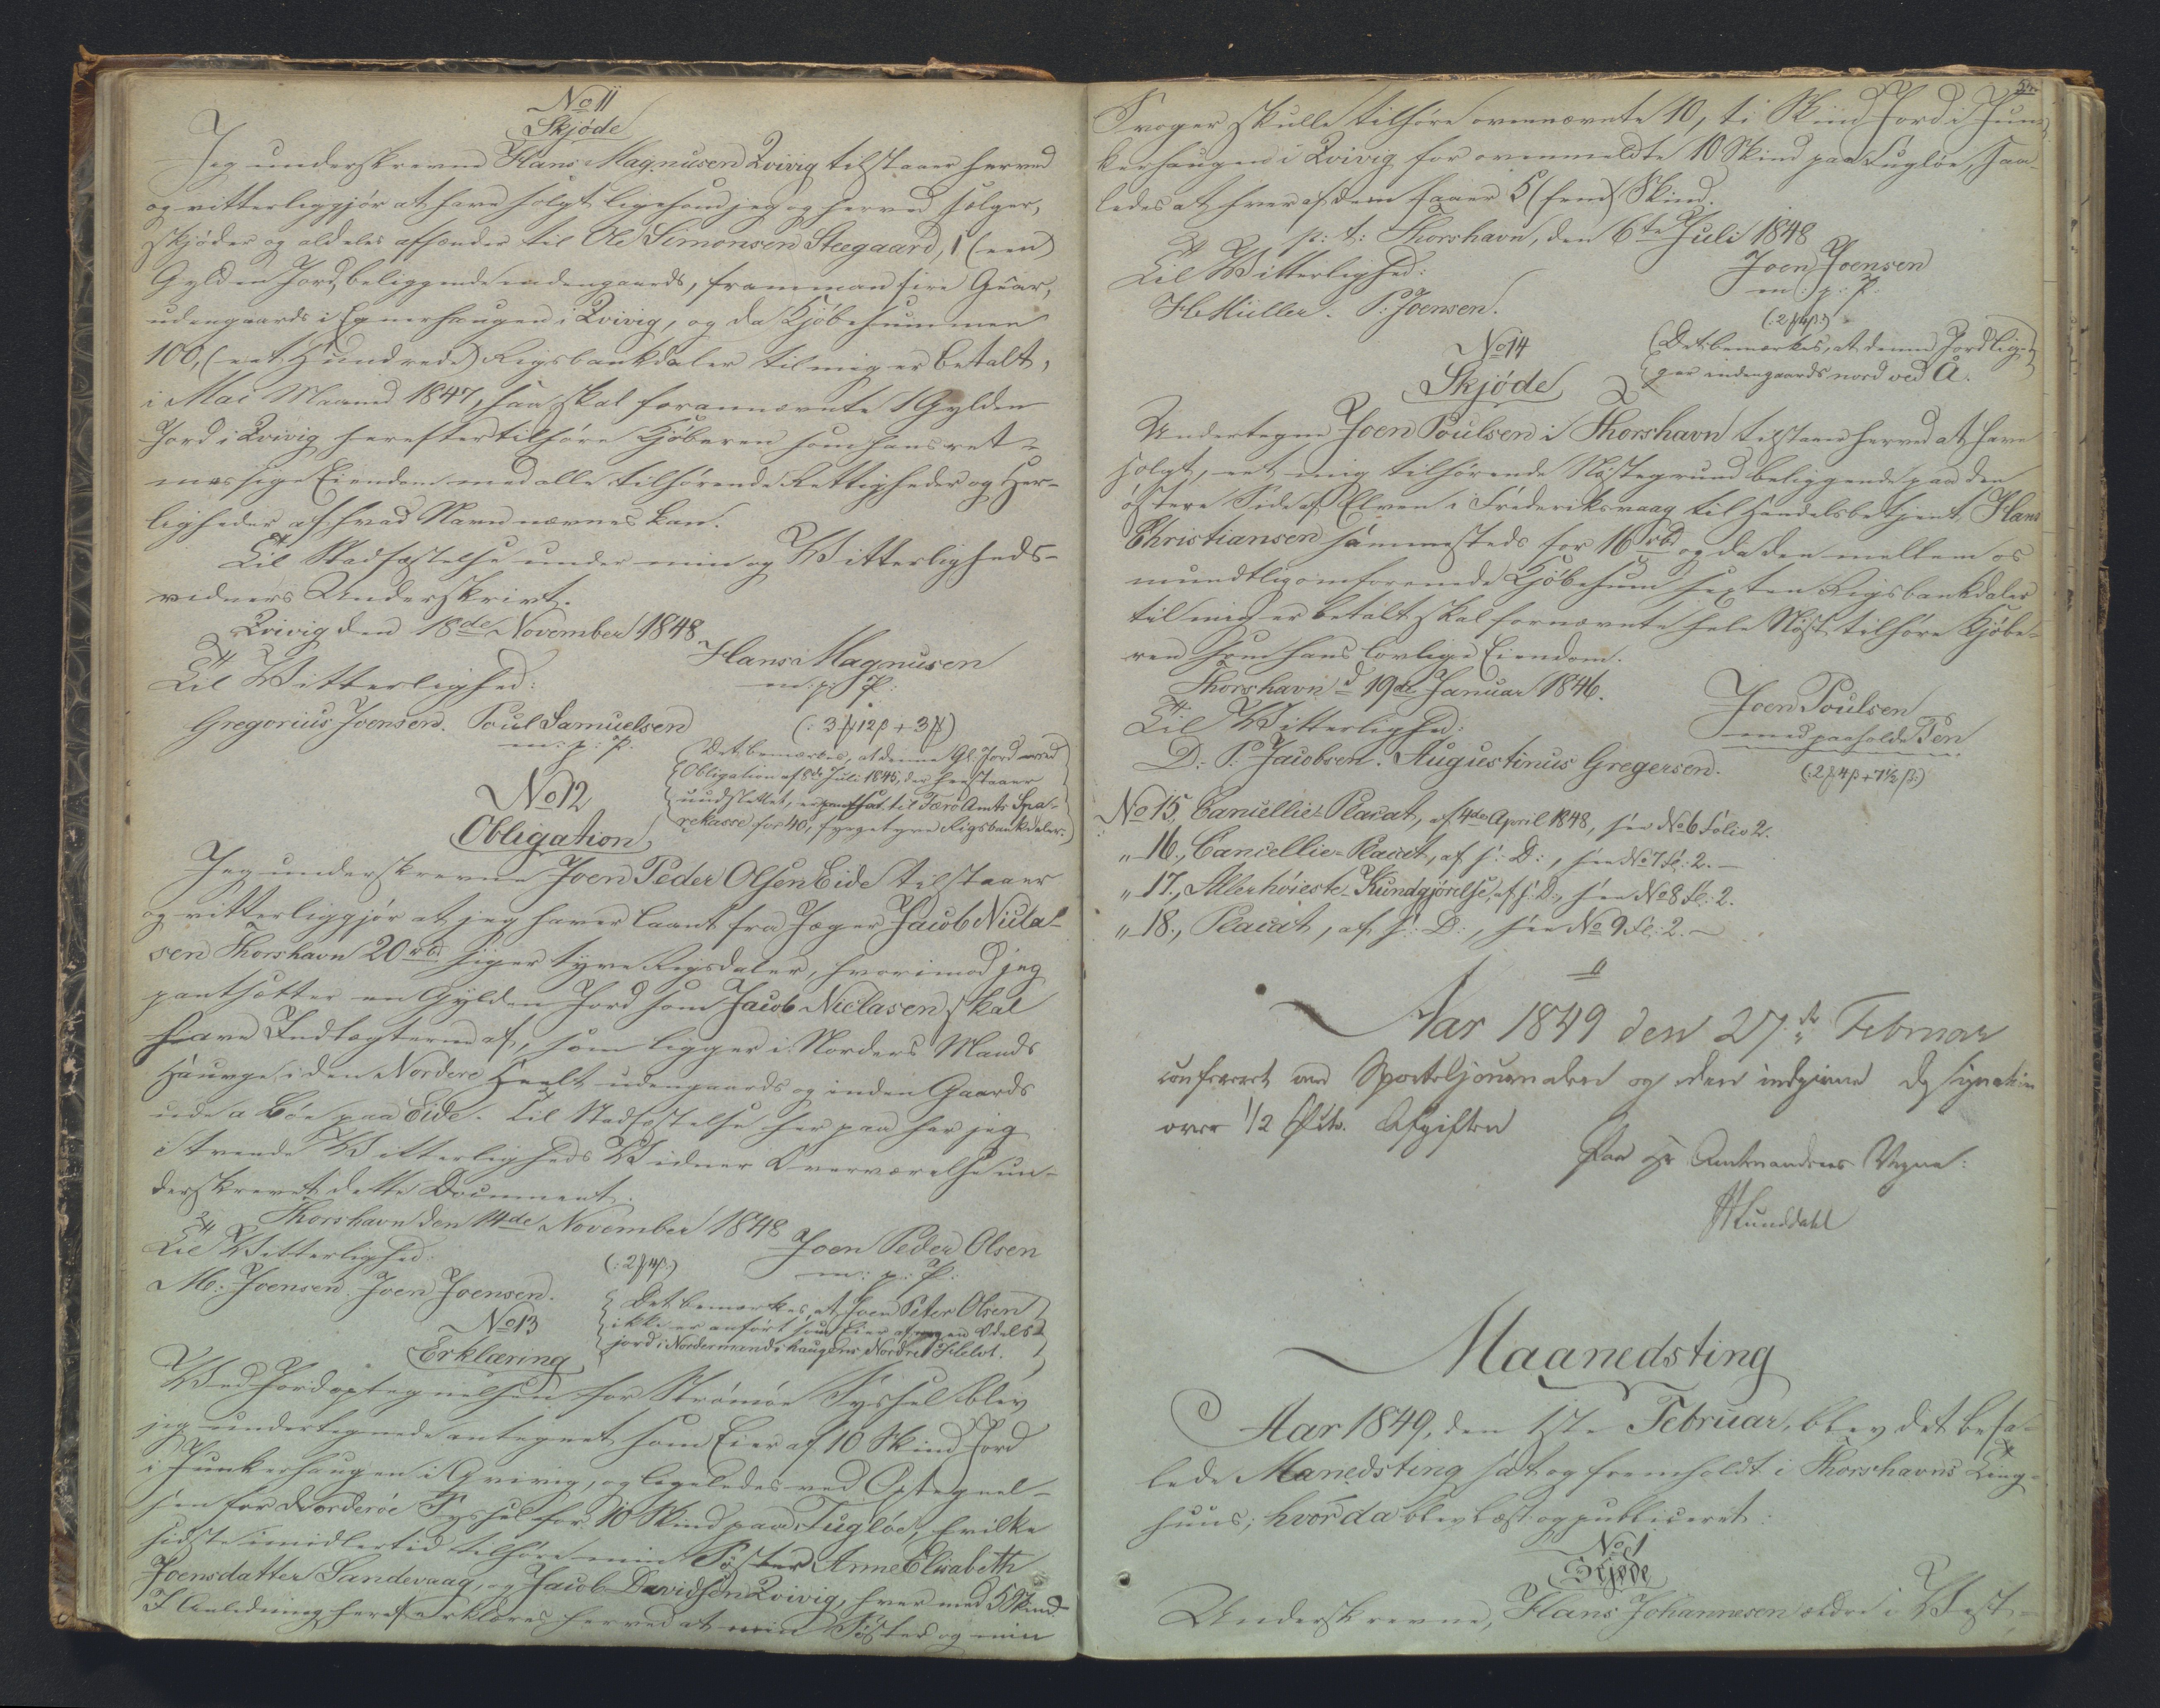 No 11
Skjøde
Jeg underskrevne Hans Magnusen Qvivig tilstaaer herved
og vitterliggjør at have solgt ligesom jeg og herved sælger,
skjøder og aldeles afhænder til Ole Simonsen Steegaard, 1 (een)
Gylden Jord, beliggende indengaards, framman fire Giar,
udengaards i Egnerhaugen i Qvivig, og da Kjøbesummen
100, (eet Hundrede) Rigsbankdaler til mig er betalt,
i Mai Maaned 1847, saa skal forannævnte 1 Gylden
Jord i Qvivig herefter tilhøre Kjøberen som hans ret-
mæssige Eiendom med alle tilhørende Rettigheder og Her-
ligheder af hvad Navn nævnes kan.
Til Stadfæstelse under min og Vitterligheds-
vidners Underskrivt.
Qvivig den 18de November 1848.
Hans Magnusen
m: p: P:
Til Vitterlighed:
Gregorius Joensen. Poul Samuelsen
m: p: P.
(: 3 ₰ 12 β + 3 ₰)
Det bemærkes, at denne Gl: Jord med
Obligation af 8de Juli 1845, der henstaaer
uudslettet, er pantsat til Færø Amts Spa-
rekasse for 40, fyrgetyve Rigsbankdaler.
No 12
Obligation
Jeg underskrevne Joen Peder Olsen Eide tilstaaer
og vitterliggjør at jeg haver laant fra Jæger Jacob Nicla-
sen Thorshavn 20 rbd siger tyve Rigsdaler, hvorimod jeg
pantsætter en Gylden Jord som Jacob Niclasen skal
have Indtægterne af, som ligger i Norders Mands
Hauge, i den Nordere Heelt udengaards og inden Gaards
ude a Bøe paa Eide. Til Stadfæstelse her paa har jeg
i tvende Vitterligheds Vidner Overværelse un-
derskrevet dette Document.
Thorshavn den 14de November 1848
Joen Peder Olsen
m: p: P:
Til Vitterlighed:
(: 2 ₰ 4 β:)
M: Joensen. Joen Joensen.
Det bemærkes, at Joen Peter Olsen
ikke er anført som Eier af nogen Odels-
jord i Nordermands haugens Nordre Helvt.
No 13
Erklæring
Ved Jordoptegnelsen for Strømøe Syssel blev
jeg undertegnede antegnet som Eier af 10 Skind Jord
i Junkerhaugen i Qvivig, og ligeledes ved Optegnel-
sen for Norderøe Syssel for 10 Skind paa Fugløe, hvilke
sidste imidlertid tilhøre min Søster Anne Elisabeth
Joensdatter Sandevaag, og Jacob Davidsen Qvivig, hver med 5 Skind
I Anledning heraf erklæres herved at min Søster og min
Svoger skulle tilhøre ovennævnte 10, ti Skind Jord i Jun-
kerhaugen i Qvivig for ovenmeldte 10 Skind paa Fugløe, saa-
ledes at hver af dem faaer 5 (fem) Skind.
p: t: Thorshavn, den 6te Juli 1848
Joen Joensen
m: p: P.
Til Vitterlighed:
H. Müller. P: Joensen.
(: 2 ₰ 4 β:)
(Det bemærkes, at denne Jord lig-
ger indengaards nord ved Å.
No 14
Skjøde
Undertegne Joen Poulsen i Thorshavn tilstaaer herved at have
solgt, eet mig tilhørende Nøstegrund beliggende paa den
østere Side af Elven i Frederiksvaag til Handelsbetjent Hans
Christiansen sammesteds for 16 rbd og da den mellem os
mundtlig omforenede Kjøbesum sexten Rigsbankdaler
til mig er betalt skal fornævnte hele Nøst tilhøre Kjøbe-
ren som hans lovlige Eiendom.
Thorshavn d 19de Januar 1846.
Joen Poulsen
med paaholde Pen
Til Vitterlighed:
D: P: Jacobsen. Augustinus Gregersen.
(: 2 ₰ 4 β + 1 1/2 β:)
No 15, Cancellie-Placat, af 4de April 1848, see No 6 Folio 2.
" 16., Cancellie-Placat, af s: D:, see No 7 fl: 2. –
" 17., Allerhøieste-Kundgjørelse, af s: D:, see No 8 fl: 2.
" 18., Placat, af s: D:, see No 9 fl: 2. –
Aar 1849 den 27de Februar
confereret med Sportteljournalen og den indgivne Designation
over 1/2 pCts. Afgiften
Paa Hr Amtmandens Vegne:
HLunddahl
Maanedsting
Aar 1849, den 1ste Februar, blev det befa-
lede Manedsting sat og fremholdt i Thorshavns Ting-
huus; hvor da blev læst og publiceret:
No 1
Skjøde
Underskrevne, Hans Johannesen ældre i Vest-